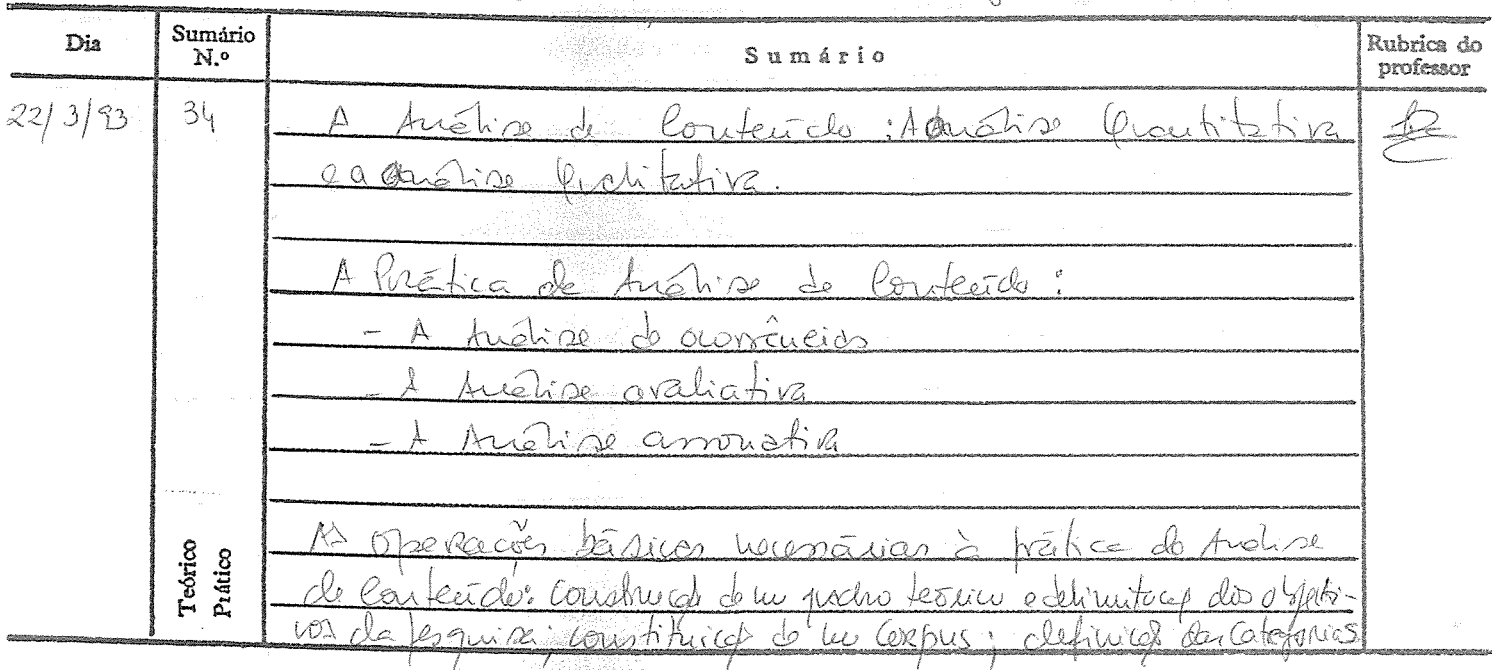 Dia Sumário N.º Sumário Rubrica do professor
22/3/93 34 A Análise de Conteúdo : A Análise Quantitativa
e a análise Qualitativa.
A Prática de Análise de Conteúdo :
- A Análise de ocorrências
- A Análise avaliativa
- A Análise associativa
Teórico Prático
As operações básicas necessárias à prática da Análise
de Conteúdo: construção de um quadro teórico e delimitação dos objecti-
vos da pesquisa; constituição de um Corpus; definição das Categorias